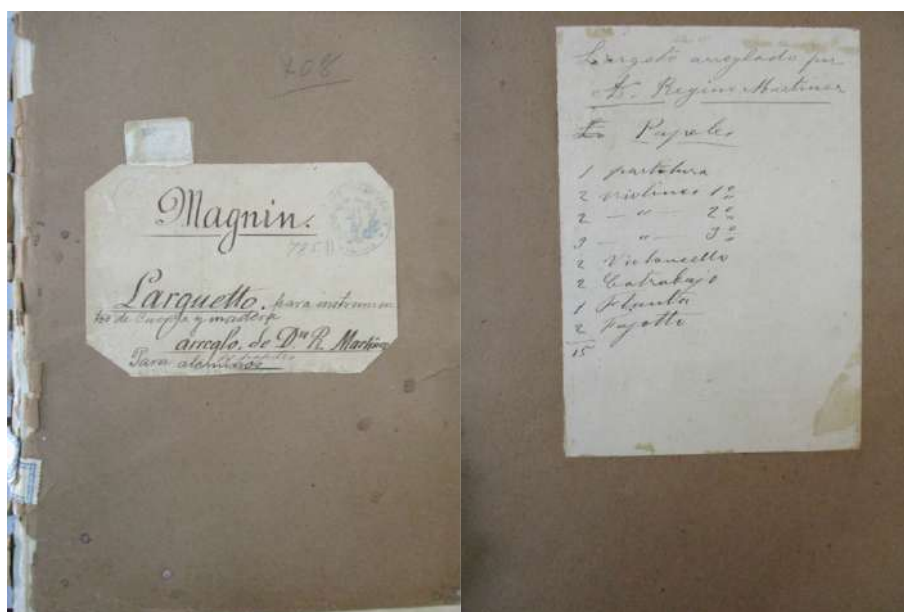 208
Magnin.
Larguetto. para instrumen
tos de Cuerda y madera
arreglo. de Dn R. Martinez
Para alumnos
Largeto arreglado por
Regino Martinez
Papeles
1 partitura
2 violines 1º
2 — " — 2º
3 — " — 3º
2 Violoncello
2 Contrabajo
1 Flauta
2 Fagotto
15